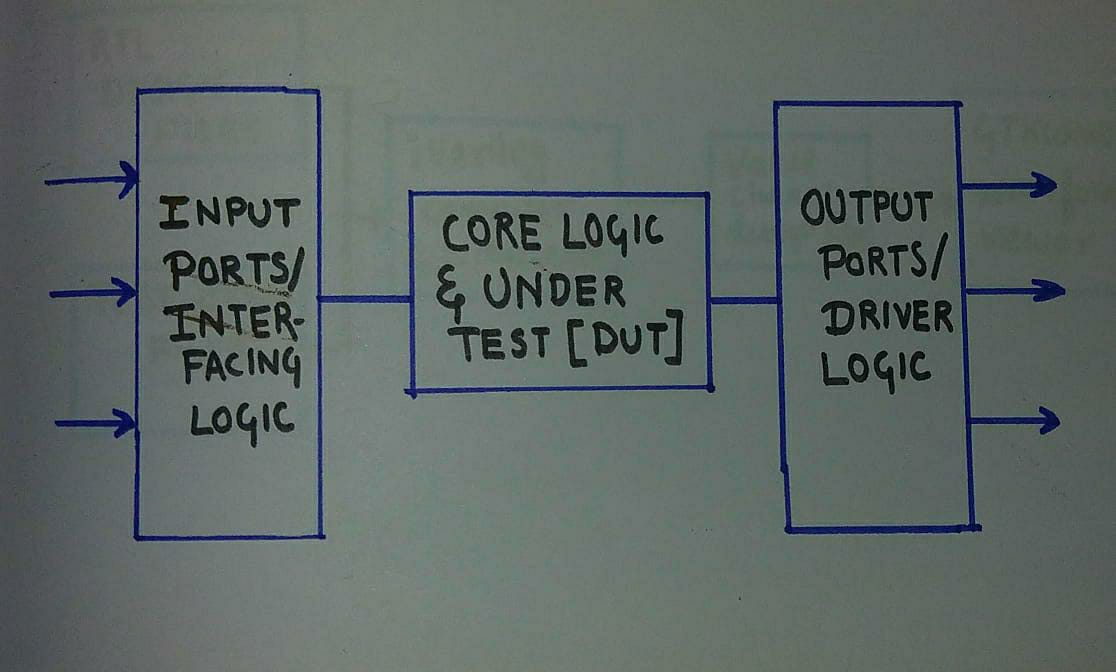 INPUT
PORTS/
INTER-
FACING
LOGIC
CORE LOGIC
& UNDER
TEST [DUT]
OUTPUT
PORTS/
DRIVER
LOGIC